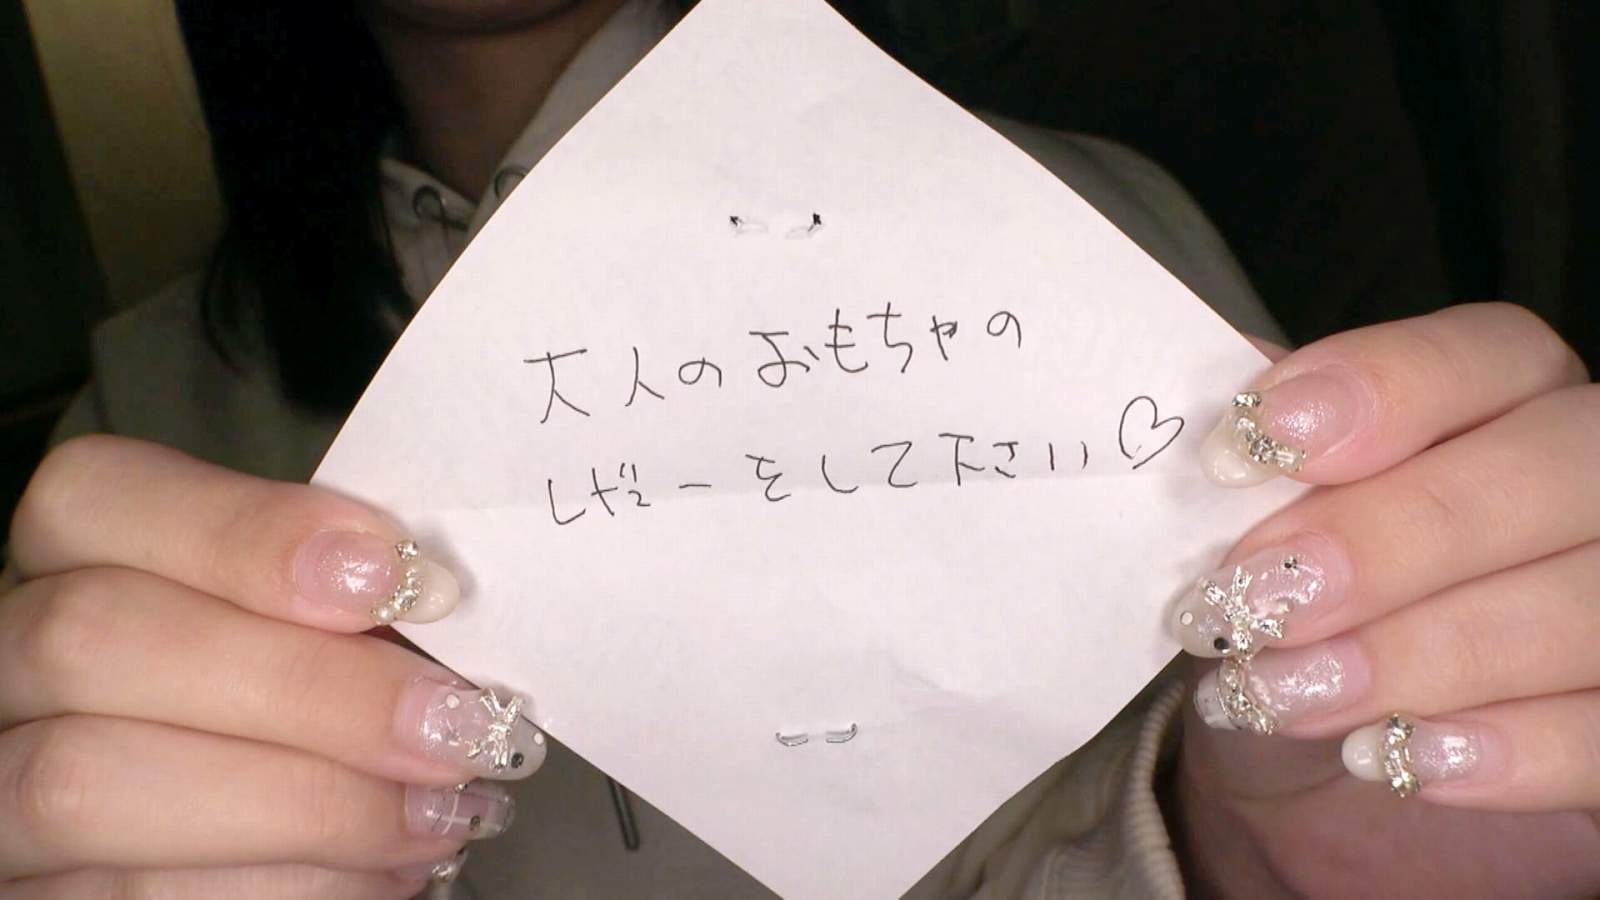 大人のおもちゃの
レビューをして下さい♡